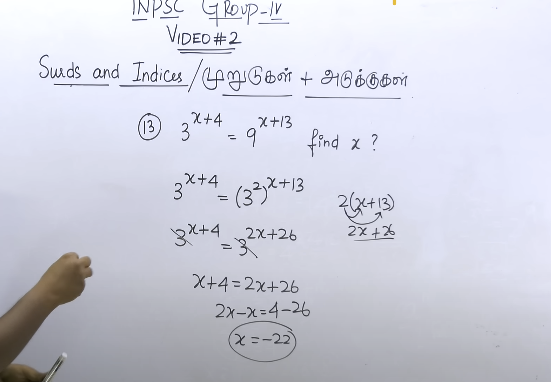 TNPSC GROUP-IV
VIDEO #2
Surds and Indices / முறுடுகள் + அடுக்குகள்
(13) 3^{x+4} = 9^{x+13} find x ?
3^{x+4} = (3^2)^{x+13}
2(x+13)
3^{x+4} = 3^{2x+26}
2x+26
x+4=2x+26
2x-x=4-26
x=-22